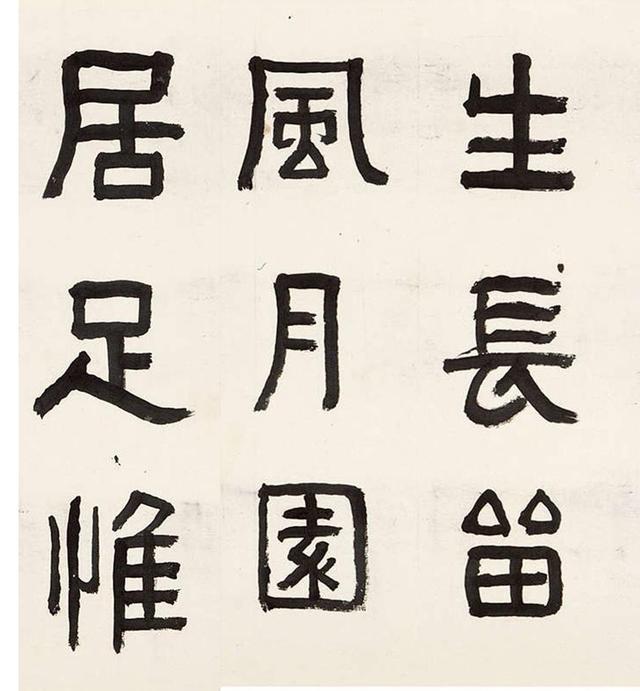 生長留
風月園
居足惟